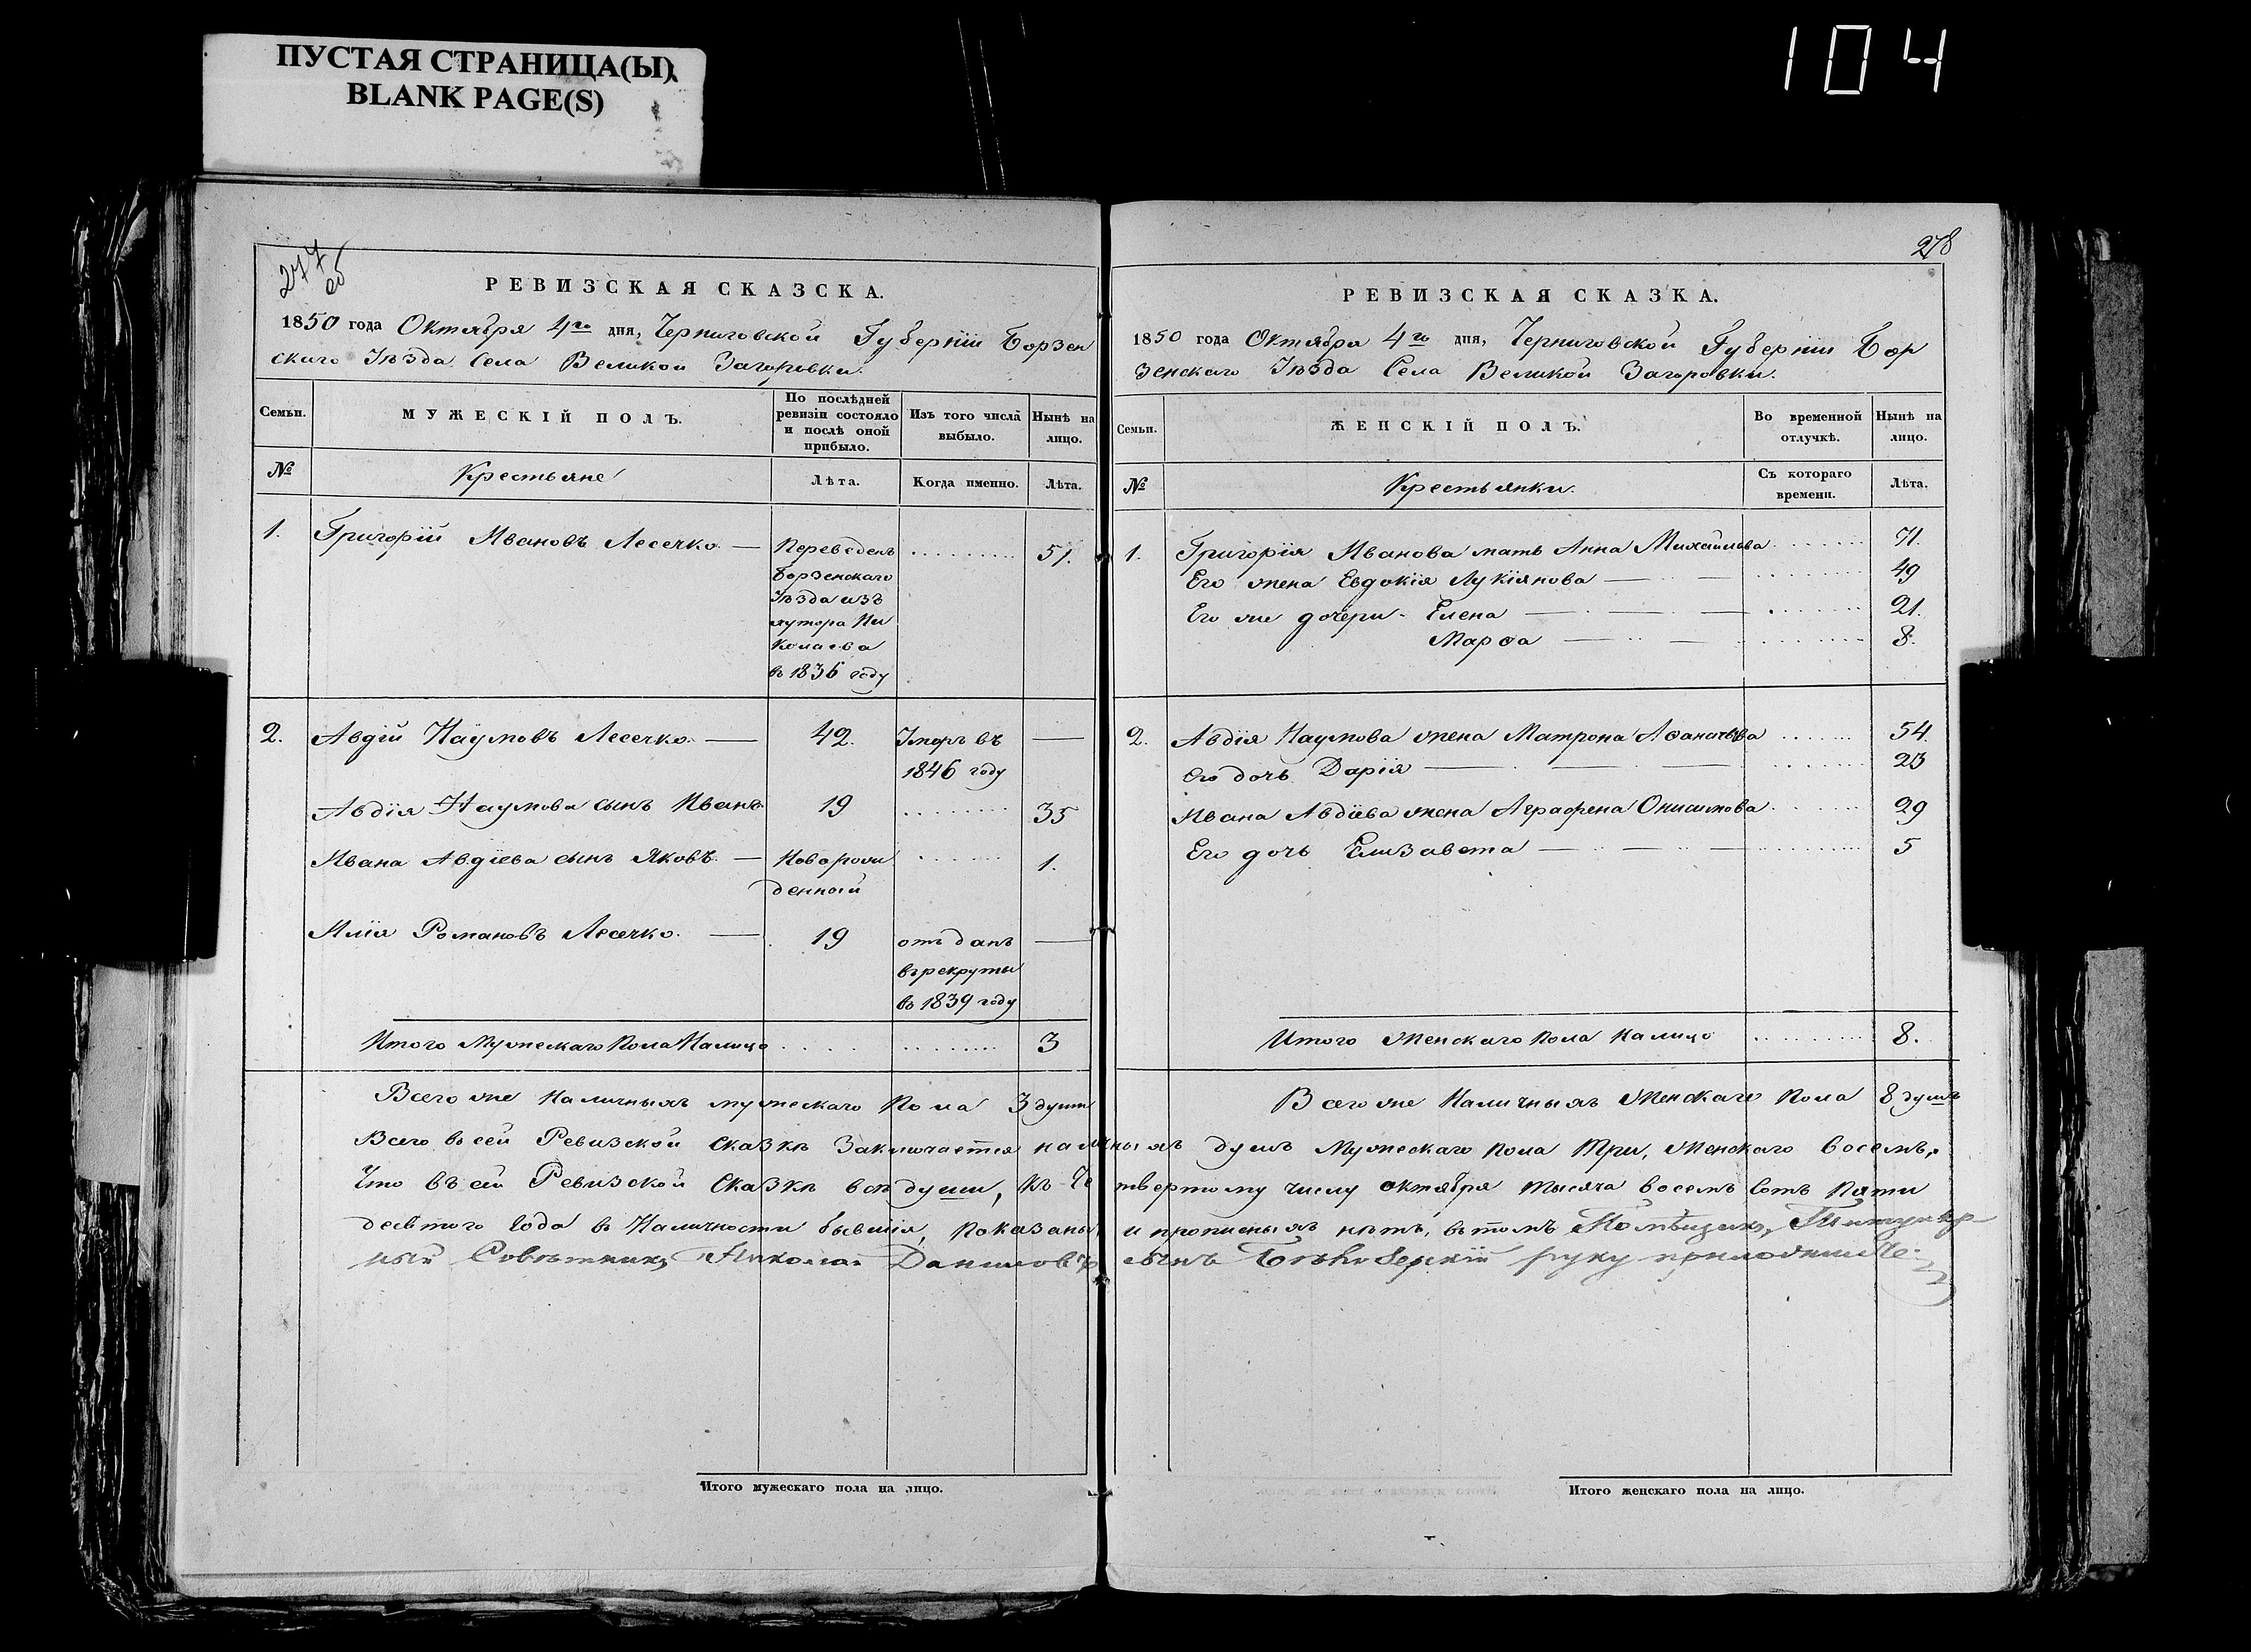 ПУСТАЯ СТРАНИЦА(Ы)
BLANK PAGE(S)
104
277
об
РЕВИЗСКАЯ СКАЗСКА.
1850 года Октября 4го дня, Черниговской Губерніи Борзен
скаго Уѣзда Села Великой Загоровки.
Семьи.
МУЖЕСКІЙ ПОЛЪ.
По послѣдней
ревизіи состояло
и послѣ оной
прибыло.
Изъ того числа
выбыло.
Нынѣ на
лицо.
№
Крестьяне
Лѣта.
Когда именно.
Лѣта.
1. Григорій Ивановъ Лесечко — Переведенъ 51.
Борзенскаго
Уѣзда изъ
хутора Ни
колаева
въ 1836 году
2. Авдій Наумовъ Лесечко. — 42. Умеръ въ —
1846 году
Авдія Наумова сынъ Иванъ 19 35
Ивана Авдіева сынъ Яковъ. — Наворож 1.
денный
Илія Романовъ Лесечко. — 19 отданъ —
въ рекруты
въ 1839 году
Итого Мужескаго Пола Налицо 3
Всего же Наличныхъ мужескаго Пола 3 души
278
РЕВИЗСКАЯ СКАЗКА.
1850 года Октября 4го дня, Черниговской Губерніи Бор
зенскаго Уѣзда Села Великой Загоровки.
Семьи.
ЖЕНСКІЙ ПОЛЪ.
Во временной
отлучкѣ.
Нынѣ на
лицо.
№
Крестьянки.
Съ котораго
времени.
Лѣта.
1. Григорія Иванова мать Анна Михайлова 71.
Его жена Евдокія Лукіянова — 49
Его же дочери - Елена — 21.
Марѳа — 8.
2. Авдія Наумова жена Матрона Аѳанасьева 54.
Его дочь Дарія — 23
Ивана Авдіева жена Аграфена Онисимова 29
Его дочь Елизавета — 5
Итого Женскаго Пола налицо 8.
Всего же Наличныхъ Женскаго Пола 8 душъ
Всего въ сей Ревизской Сказкѣ Заключается наличныхъ душъ Мужескаго Пола Три, Женскаго восемь,
Что въ сей Ревизской Сказкѣ всѣ души, къ Четвертому числу октября тысяча восемь сотъ Пяти
десятого года въ Наличности бывшія, показаны и прописныхъ нѣтъ, въ томъ Помѣщикъ, Титуляр-
ный Совѣтникъ Николай Даниловъ сынъ руку приложилъ
Итого мужескаго пола на лицо.
Итого женскаго пола на лицо.